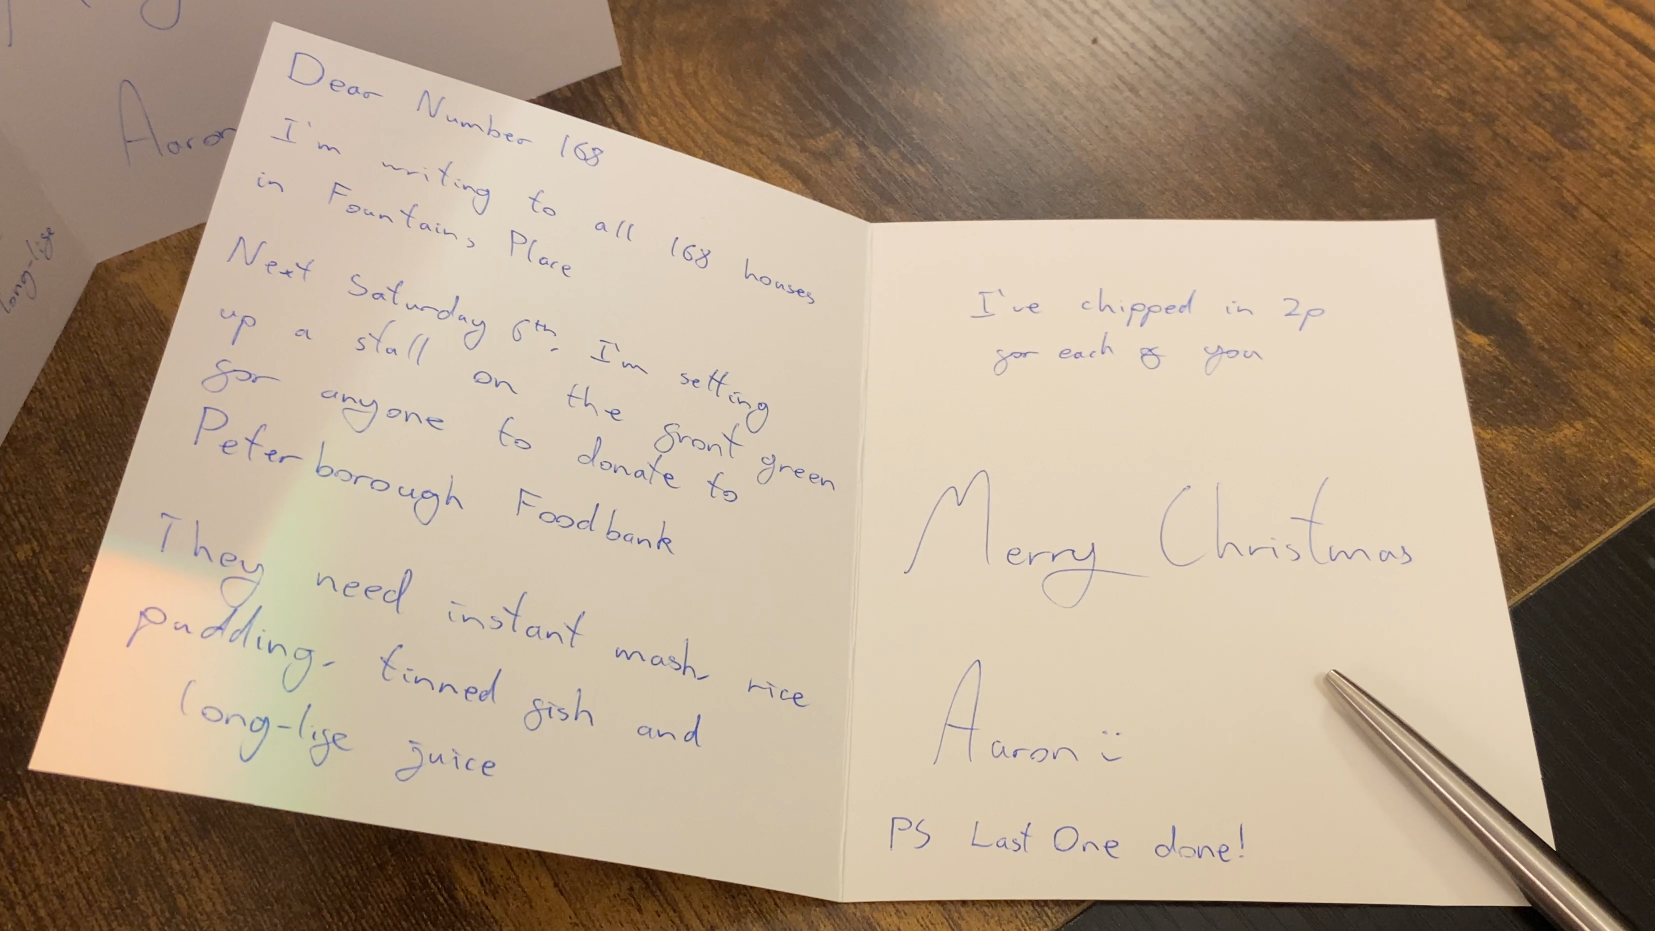 Aaron
long-life
Dear Number 168
I'm writing to all 168 houses
in Fountains Place
Next Saturday 6th, I'm setting
up a stall on the front green
for anyone to donate to
Peterborough Foodbank
They need instant mash, rice
pudding, tinned fish and
long-life juice
I've chipped in 2p
for each of you
Merry Christmas
Aaron :)
PS Last One done!